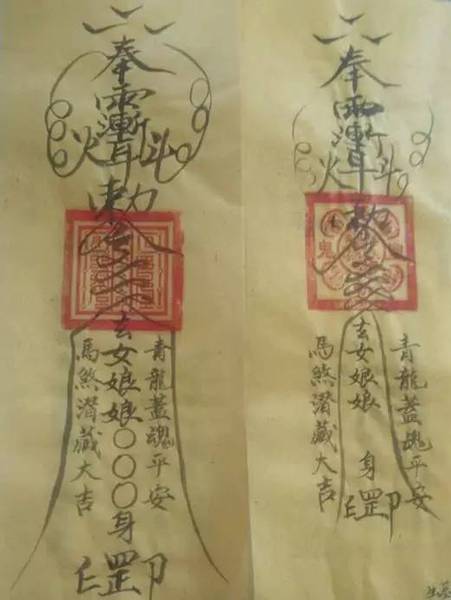 奉
火 斗
敕令
玄女娘娘〇〇〇身
罡
青龍蓋魂平安
馬煞潛藏大吉
奉
火 斗
敕令
玄女娘娘 身
罡
青龍蓋魂平安
馬煞潛藏大吉